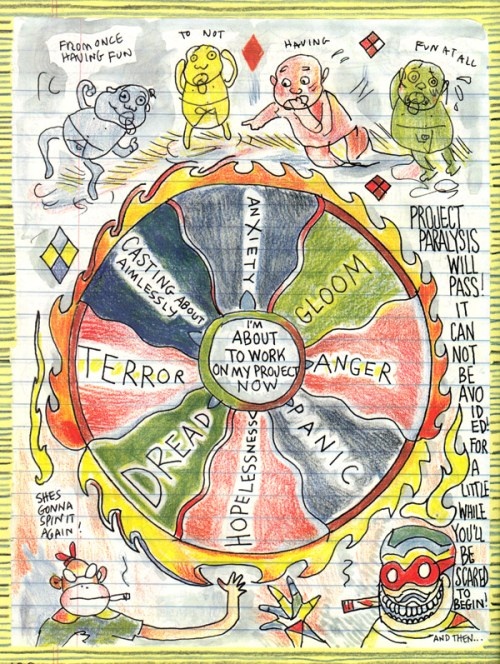 FROM ONCE
HAVING FUN
TO NOT
HAVING
FUN AT ALL
ANXIETY
GLOOM
ANGER
PANIC
HOPELESSNESS
DREAD
TERROR
CASTING ABOUT
AIMLESSLY
I'M
ABOUT
TO WORK
ON MY PROJECT
NOW
PROJECT
PARALYSIS
WILL
PASS!
IT
CAN
NOT
BE
AVO
ID
ED!
FOR
A
LITTLE
WHILE
YOU'LL
BE
SCARED
TO
BEGIN!
AND THEN...
SHES
GONNA
SPIN IT
AGAIN!